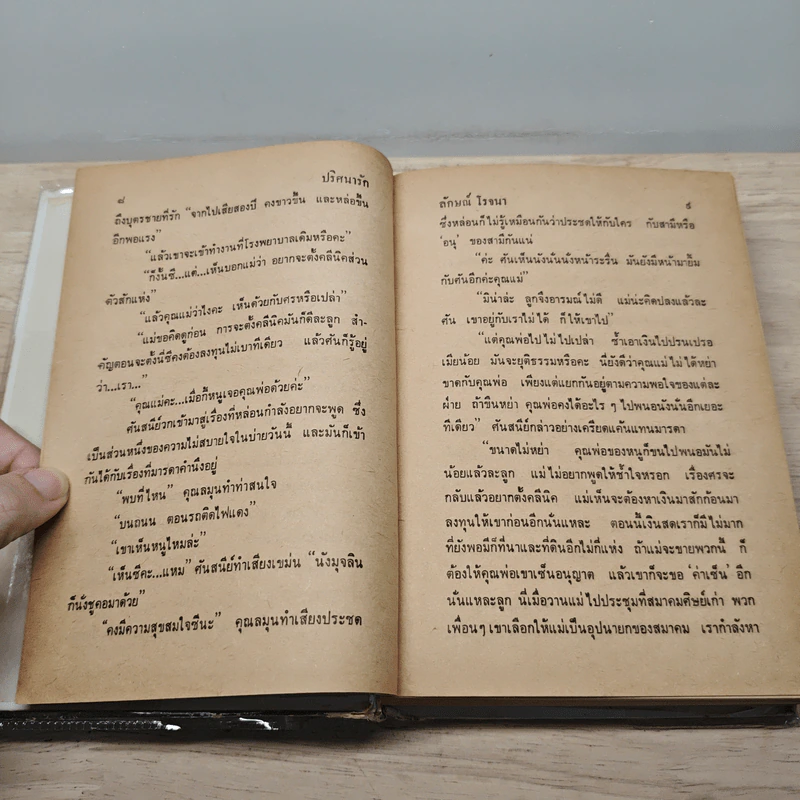 ๘
ปริศนารัก
ถึงบุตรชายที่รัก “จากไปเสียสองปี คงขาวขึ้น และหล่อขึ้น
อีกพอแรง”
“แล้วเขาจะเข้าทำงานที่โรงพยาบาลเดิมหรือคะ”
“ก็งั้นซี...แต่...เห็นบอกแม่ว่า อยากจะตั้งคลีนิคส่วน
ตัวสักแห่ง”
“แล้วคุณแม่ว่าไงคะ เห็นด้วยกับศรหรือเปล่า”
“แม่ขอคิดดูก่อน การจะตั้งคลีนิคมันก็ดีละลูก สำ-
คัญตอนจะตั้งนี่ซีคงต้องลงทุนไม่เบาทีเดียว แล้วศันก็รู้อยู่
ว่า...เรา...”
“คุณแม่คะ...เมื่อกี้หนูเจอคุณพ่อด้วยค่ะ”
ศันสนีย์วกเข้ามาสู่เรื่องที่หล่อนกำลังอยากจะพูด ซึ่ง
เป็นส่วนหนึ่งของความไม่สบายใจในบ่ายวันนี้ และมันก็เข้า
กันได้กับเรื่องที่มารดาคำนึงอยู่
“พบที่ไหน” คุณลมุนทำท่าสนใจ
“บนถนน ตอนรถติดไฟแดง”
“เขาเห็นหนูไหมล่ะ”
“เห็นซีคะ...แหม” ศันสนีย์ทำเสียงเขม่น “นังมุจลิน
ก็นั่งชูคอมาด้วย”
“คงมีความสุขสมใจซีนะ” คุณลมุนทำเสียงประชด
ลักษณ์ โรจนา
๙
ซึ่งหล่อนก็ไม่รู้เหมือนกันว่าประชดให้กับใคร กับสามีหรือ
‘อนุ’ ของสามีกันแน่
“ค่ะ ศันเห็นนังนั่นนั่งหน้าระรื่น มันยังมีหน้ามายิ้ม
กับศันอีกค่ะคุณแม่”
“มิน่าล่ะ ลูกจึงอารมณ์ไม่ดี แม่น่ะคิดปลงแล้วละ
ศัน เขาอยู่กับเราไม่ได้ ก็ให้เขาไป”
“แต่คุณพ่อไปไม่ไปเปล่า ซ้ำเอาเงินไปปรนเปรอ
เมียน้อย มันจะยุติธรรมหรือคะ นี่ยังดีว่าคุณแม่ไม่ได้หย่า
ขาดกับคุณพ่อ เพียงแต่แยกกันอยู่ตามความพอใจของแต่ละ
ฝ่าย ถ้าขืนหย่า คุณพ่อคงได้อะไร ๆ ไปพอนังนั่นอีกเยอะ
ทีเดียว” ศันสนีย์กล่าวอย่างเครียดแค้นแทนมารดา
“ขนาดไม่หย่า คุณพ่อของหนูก็ขนไปพนอมันไม่
น้อยแล้วละลูก แม่ไม่อยากพูดให้ช้ำใจหรอก เรื่องศรจะ
กลับแล้วอยากตั้งคลีนิค แม่เห็นจะต้องหาเงินมาสักก้อนมา
ลงทุนให้เขาก่อนอีกนั่นแหละ ตอนนี้เงินสดเราก็มีไม่มาก
ที่ยังพอมีก็ที่นาและที่ดินอีกไม่กี่แห่ง ถ้าแม่จะขายพวกนี้ ก็
ต้องให้คุณพ่อเขาเซ็นอนุญาต แล้วเขาก็จะขอ ‘ค่าเซ็น’ อีก
นั่นแหละลูก นี่เมื่อวานแม่ไปประชุมที่สมาคมศิษย์เก่า พวก
เพื่อนๆ เขาเลือกให้แม่เป็นอุปนายกของสมาคม เรากำลังหา